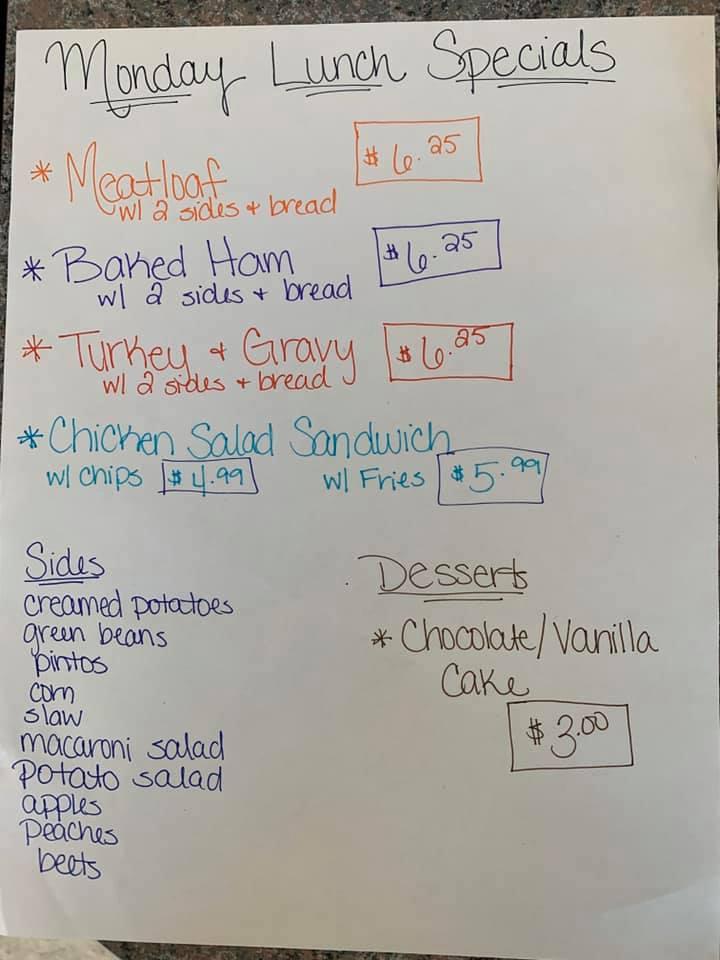 Monday Lunch Specials
* Meatloaf $6.25
w/ 2 sides + bread
* Baked Ham $6.25
w/ 2 sides + bread
* Turkey + Gravy $6.25
w/ 2 sides + bread
* Chicken Salad Sandwich
w/ chips $4.99 w/ Fries $5.99
Sides
creamed potatoes
green beans
pintos
corn
slaw
macaroni salad
potato salad
apples
Peaches
beets
Desserts
* Chocolate/Vanilla
Cake
$3.00